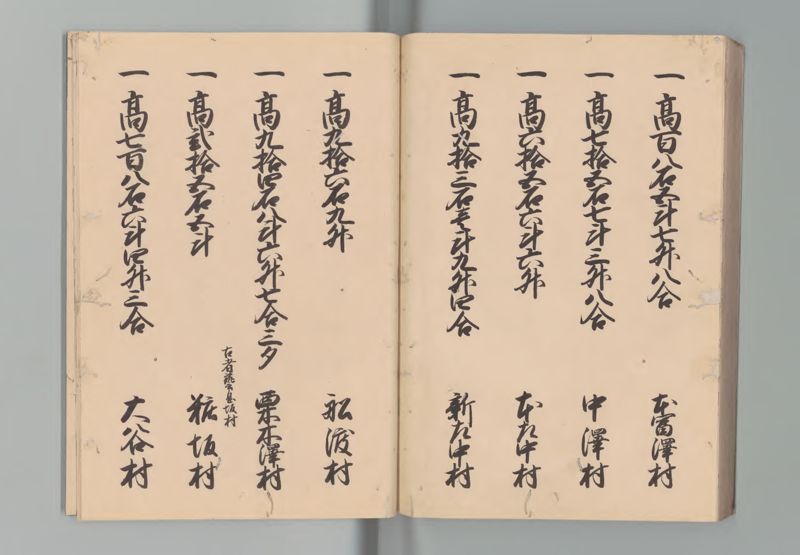 一 高百八石五斗七升八合 本富澤村
一 高七拾五石七斗三升八合 中澤村
一 高六拾五石六斗六升 本江中村
一 高九拾三石壱斗九升四合 新江中村
一 高九拾六石九升 船渡村
一 高九拾四石八斗六升七合三夕 栗木澤村
古者
坂村
一 高弐拾五石五斗 糀坂村
一 高七百八石六斗四升三合 大谷村